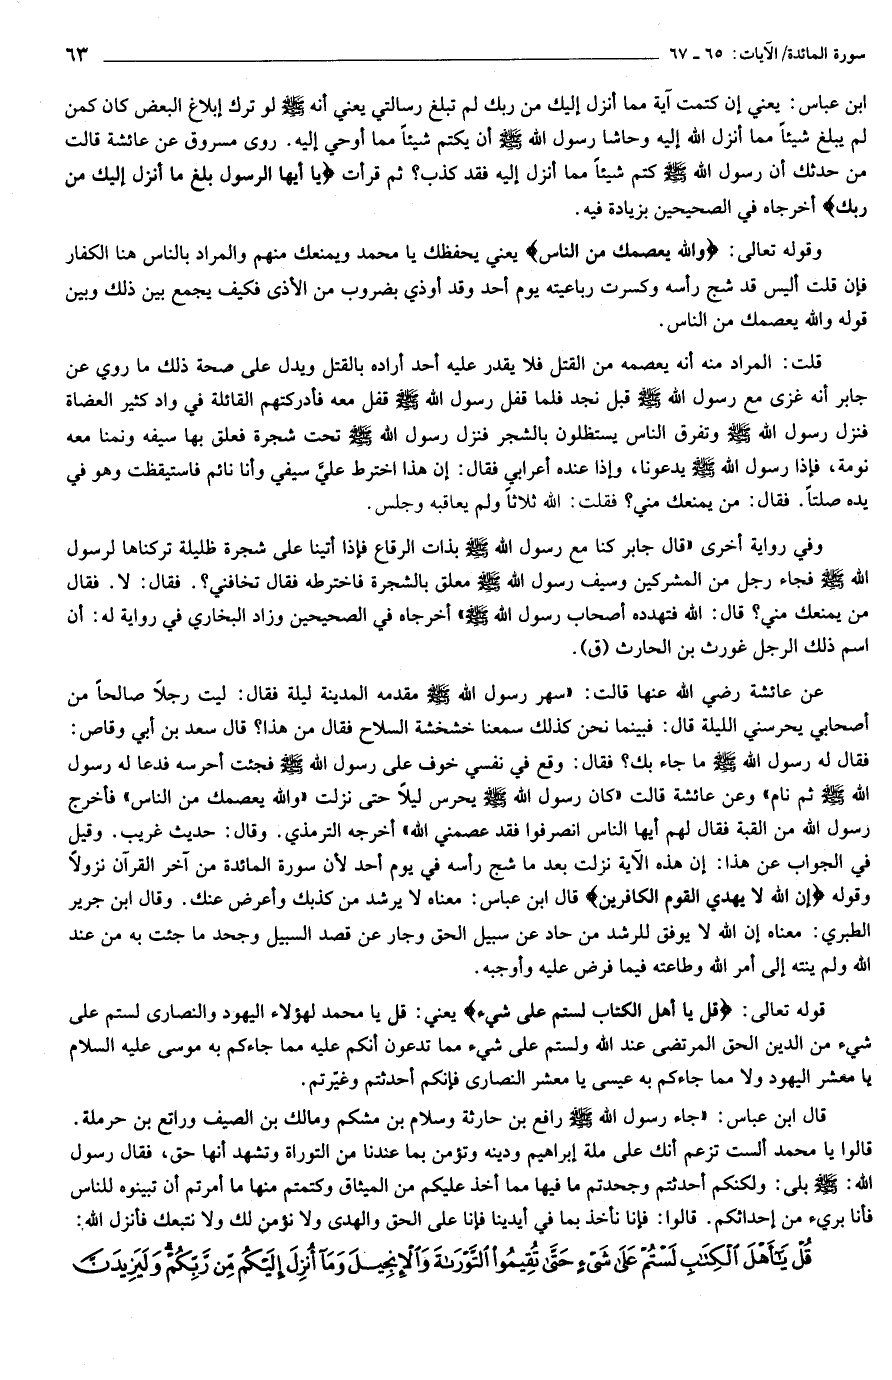 سورة المائدة/ الآيات: ٦٥ - ٦٧ ٦٣
ابن عباس: يعني إن كتمت آية مما أنزل إليك من ربك لم تبلغ رسالتي يعني أنه ﷺ لو ترك إبلاغ البعض كان كمن
لم يبلغ شيئاً مما أنزل الله إليه وحاشا رسول الله ﷺ أن يكتم شيئاً مما أوحي إليه. روى مسروق عن عائشة قالت
من حدثك أن رسول الله ﷺ كتم شيئاً مما أنزل إليه فقد كذب؟ ثم قرأت ﴿يا أيها الرسول بلغ ما أنزل إليك من
ربك﴾ أخرجاه في الصحيحين بزيادة فيه.
وقوله تعالى: ﴿والله يعصمك من الناس﴾ يعني يحفظك يا محمد ويمنعك منهم والمراد بالناس هنا الكفار
فإن قلت أليس قد شج رأسه وكسرت رباعيته يوم أحد وقد أوذي بضروب من الأذى فكيف يجمع بين ذلك وبين
قوله والله يعصمك من الناس.
قلت: المراد منه أنه يعصمه من القتل فلا يقدر عليه أحد أراده بالقتل ويدل على صحة ذلك ما روي عن
جابر أنه غزى مع رسول الله ﷺ قبل نجد فلما قفل رسول الله ﷺ قفل معه فأدركتهم القائلة في واد كثير العضاة
فنزل رسول الله ﷺ وتفرق الناس يستظلون بالشجر فنزل رسول الله ﷺ تحت شجرة فعلق بها سيفه ونمنا معه
نومة، فإذا رسول الله ﷺ يدعونا، وإذا عنده أعرابي فقال: إن هذا اخترط عليَّ سيفي وأنا نائم فاستيقظت وهو في
يده صلتاً. فقال: من يمنعك مني؟ فقلت: الله ثلاثاً ولم يعاقبه وجلس.
وفي رواية أخرى «قال جابر كنا مع رسول الله ﷺ بذات الرقاع فإذا أتينا على شجرة ظليلة تركناها لرسول
الله ﷺ فجاء رجل من المشركين وسيف رسول الله ﷺ معلق بالشجرة فاخترطه فقال تخافني؟. فقال: لا. فقال
من يمنعك مني؟ قال: الله فتهدده أصحاب رسول الله ﷺ» أخرجاه في الصحيحين وزاد البخاري في رواية له: أن
اسم ذلك الرجل غورث بن الحارث (ق).
عن عائشة رضي الله عنها قالت: «سهر رسول الله ﷺ مقدمه المدينة ليلة فقال: ليت رجلاً صالحاً من
أصحابي يحرسني الليلة قال: فبينما نحن كذلك سمعنا خشخشة السلاح فقال من هذا؟ قال سعد بن أبي وقاص:
فقال له رسول الله ﷺ ما جاء بك؟ فقال: وقع في نفسي خوف على رسول الله ﷺ فجئت أحرسه فدعا له رسول
الله ﷺ ثم نام» وعن عائشة قالت «كان رسول الله ﷺ يحرس ليلاً حتى نزلت «والله يعصمك من الناس» فأخرج
رسول الله من القبة فقال لهم أيها الناس انصرفوا فقد عصمني الله» أخرجه الترمذي. وقال: حديث غريب. وقيل
في الجواب عن هذا: إن هذه الآية نزلت بعد ما شج رأسه في يوم أحد لأن سورة المائدة من آخر القرآن نزولاً
وقوله ﴿إن الله لا يهدي القوم الكافرين﴾ قال ابن عباس: معناه لا يرشد من كذبك وأعرض عنك. وقال ابن جرير
الطبري: معناه إن الله لا يوفق للرشد من حاد عن سبيل الحق وجار عن قصد السبيل وجحد ما جئت به من عند
الله ولم ينته إلى أمر الله وطاعته فيما فرض عليه وأوجبه.
قوله تعالى: ﴿قل يا أهل الكتاب لستم على شيء﴾ يعني: قل يا محمد لهؤلاء اليهود والنصارى لستم على
شيء من الدين الحق المرتضى عند الله ولستم على شيء مما تدعون أنكم عليه مما جاءكم به موسى عليه السلام
يا معشر اليهود ولا مما جاءكم به عيسى يا معشر النصارى فإنكم أحدثتم وغيّرتم.
قال ابن عباس: «جاء رسول الله ﷺ رافع بن حارثة وسلام بن مشكم ومالك بن الصيف وراتع بن حرملة.
قالوا يا محمد ألست تزعم أنك على ملة إبراهيم ودينه وتؤمن بما عندنا من التوراة وتشهد أنها حق، فقال رسول
الله: ﷺ بلى: ولكنكم أحدثتم وجحدتم ما فيها مما أخذ عليكم من الميثاق وكتمتم منها ما أمرتم أن تبينوه للناس
فأنا بريء من إحداثكم. قالوا: فإنا نأخذ بما في أيدينا فإنا على الحق والهدى ولا نؤمن لك ولا نتبعك فأنزل الله:
قُلْ يَٰٓأَهْلَ ٱلْكِتَٰبِ لَسْتُمْ عَلَىٰ شَىْءٍ حَتَّىٰ تُقِيمُوا۟ ٱلتَّوْرَىٰةَ وَٱلْإِنجِيلَ وَمَآ أُنزِلَ إِلَيْكُم مِّن رَّبِّكُمْ ۗ وَلَيَزِيدَنَّ